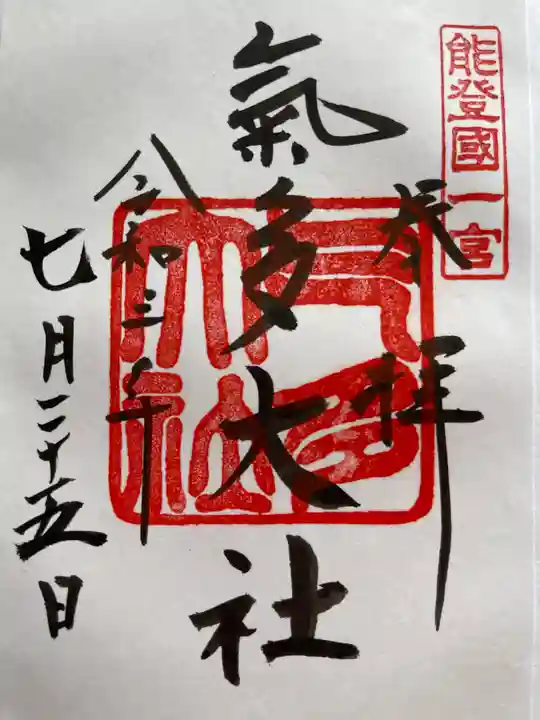 能登國一宮
奉拝
氣多大社
令和三年
七月二十五日